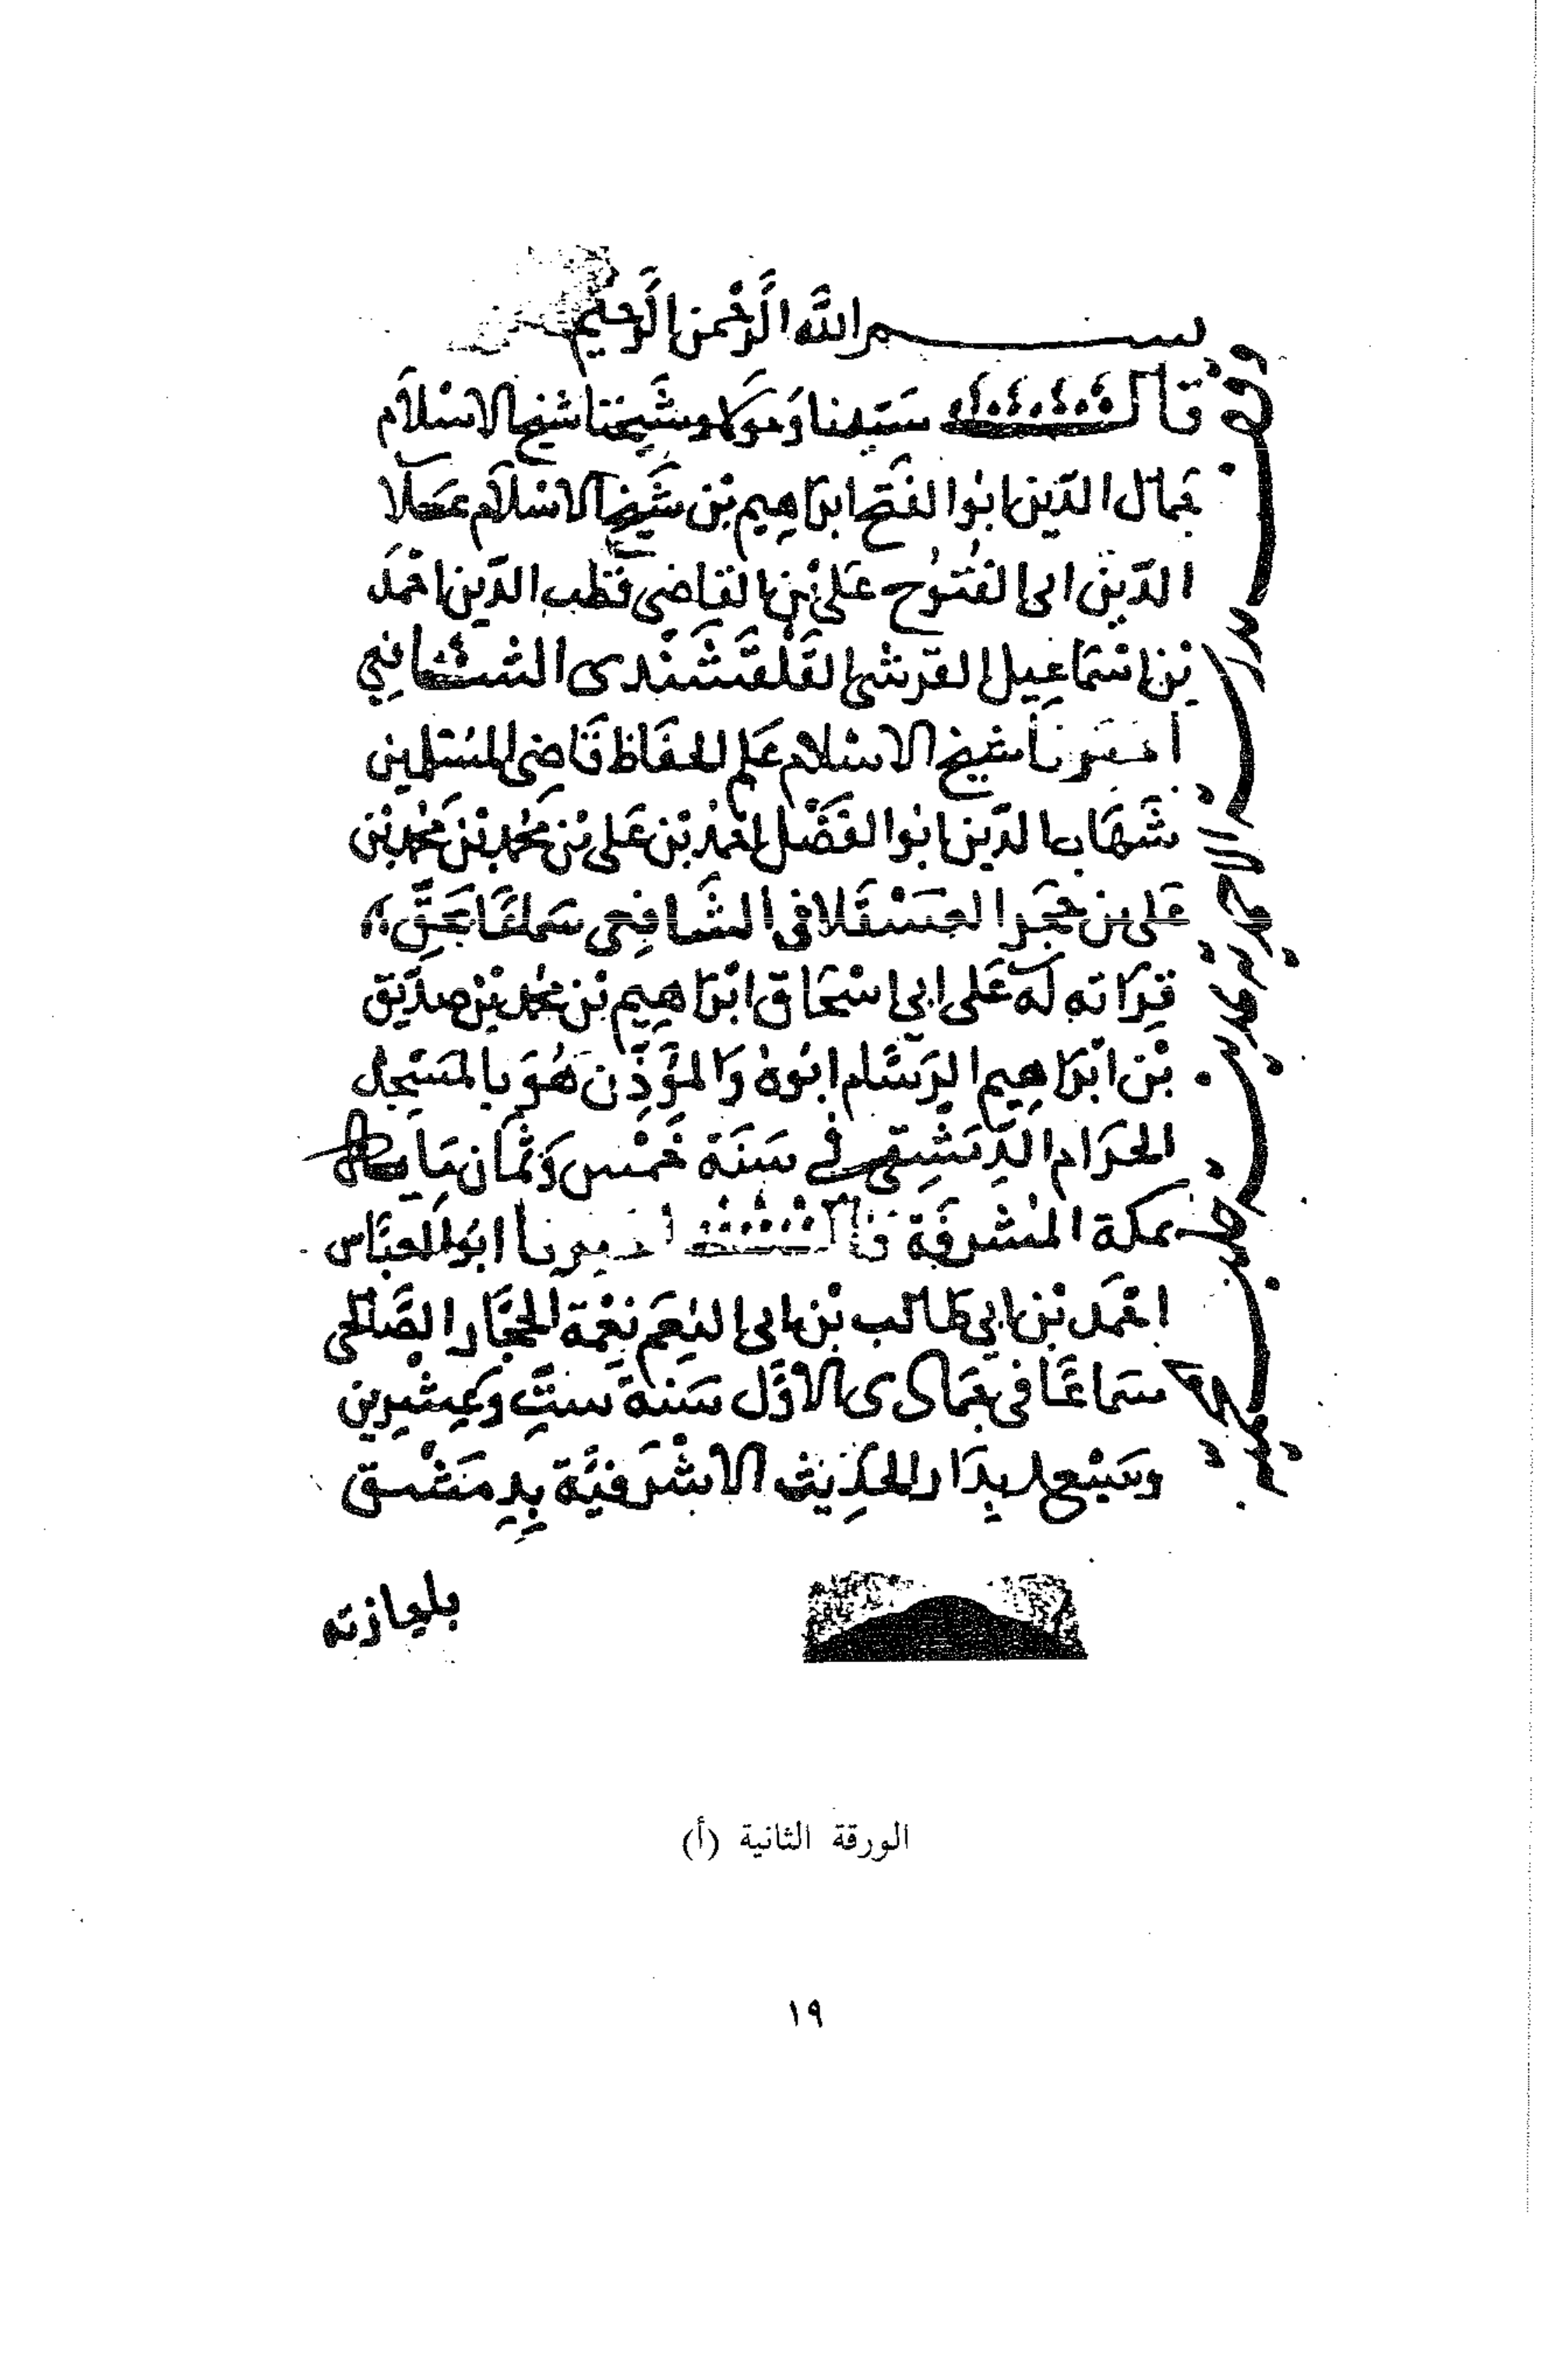 بسم الله الرَّحْمن الرَّحيم
قال سَيّدنا وَمَولانا وشَيخنا شيخ الاسْلاَم
جمال الدّين ابوا الفَتح ابرَاهِيم بْن شَيْخ الاسْلاَم عَلا
الدّين ابى الفُتُوُح عَلى بْن القاضى قطب الدّين احْمَد
بْن اسْمَاعِيل القرشى القَلْقَشَنْدى الشافِعِي
اخبرنا شيخ الاسْلام عَلم الحفَاظ قَاضِى المسْلمين
شَهَاب الدّين ابوا الفَضْل احمد بْن عَلى بْن محُمد بْن محُمد بْن
عَلى بن حَجَر العَسْقَلانى الشَافِعى سَماعًا بحَقّ
قِرَاته لَه عَلى ابي اسْحَاق ابْرَاهِيم بْن محُمد بْن صدّيق
بْن ابْرَاهِيم الرسَّام ابُوهُ وَالموَذّن هُوَ بالمَسْجد
الحرَام الدّمَشِقى في سَنَة خَمْس وَثمَان مَاية
بمكة المشرفَة قال اخبرنا ابوَا العبَّاس
احْمَد بْن ابي طَالب بْن ابى النِعَم نِعْمَة الحجَّار الصَّالحى
سَماعًا فى جمَادى الاوَّل سَنة ستٍّ وَعِشْرِين
وسَبْعماية بِدَار الحَدِيث الاشْرَفيَّة بِدِمَشْق
باجازته
الورقة الثانية (أ)
١٩